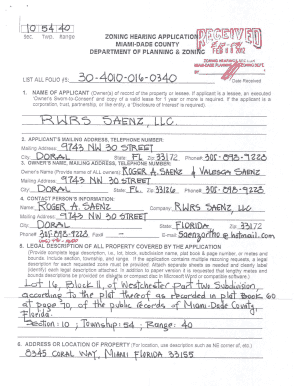 10 54 40
Sec. Twp. Range
ZONING HEARING APPLICATION
MIAMI-DADE COUNTY
DEPARTMENT OF PLANNING & ZONING
RECEIVED
FEB 08 2012
ZONING HEARINGS SECTION
MIAMI-DADE PLANNING & ZONING DEPT.
BY
Date Received
LIST ALL FOLIO #S: 30-4010-016-0340
1. NAME OF APPLICANT (Owner(s) of record of the property or lessee. If applicant is a lessee, an executed
'Owner's Sworn-to-Consent' and copy of a valid lease for 1 year or more is required. If the applicant is a
corporation, trust, partnership, or like entity, a 'Disclosure of Interest' is required).
RWRS SAENZ, LLC.
2. APPLICANT'S MAILING ADDRESS, TELEPHONE NUMBER:
Mailing Address: 9743 NW 30 STREET
City: DORAL State: FL Zip: 33172 Phone#: 305-898-9223
3. OWNER'S NAME, MAILING ADDRESS, TELEPHONE NUMBER:
Owner's Name (Provide name of ALL owners): ROGER A. SAENZ & VALESCA SAENZ
Mailing Address: 9743 NW 30 STREET
City: DORAL State: FL Zip: Phone#: 305-898-9223
4. CONTACT PERSON'S INFORMATION:
Name: ROGER A. SAENZ Company: RWRS SAENZ, LLC.
Mailing Address: 9743 NW 30 STREET
City: DORAL State: FLORIDA Zip: 33172
Phone# 305-898-9223 Fax# E-mail: Saenzortho@hotmail.com
5. LEGAL DESCRIPTION OF ALL PROPERTY COVERED BY THE APPLICATION
(Provide complete legal description, i.e., lot, block, subdivision name, plat book & page number, or metes and
bounds. Include section, township, and range. If the application contains multiple rezoning requests, a legal
description for each requested zone must be provided. Attach separate sheets as needed and clearly label
(identify) each legal description attached. In addition to paper version it is requested that lengthy metes and
bounds descriptions be provided on diskette or compact disc in Microsoft Word or compatible software.)
Lot 16, Block 11, of Westchester Part two Subdivision,
according to the plat thereof as recorded in plat Book 60
at page 90, of the public records of Miami-Dade County,
Florida.
Section: 10, Township: 54, Range: 40
6. ADDRESS OR LOCATION OF PROPERTY (For location, use description such as NE corner of, etc.)
8345 CORAL WAY, MIAMI FLORIDA 33155